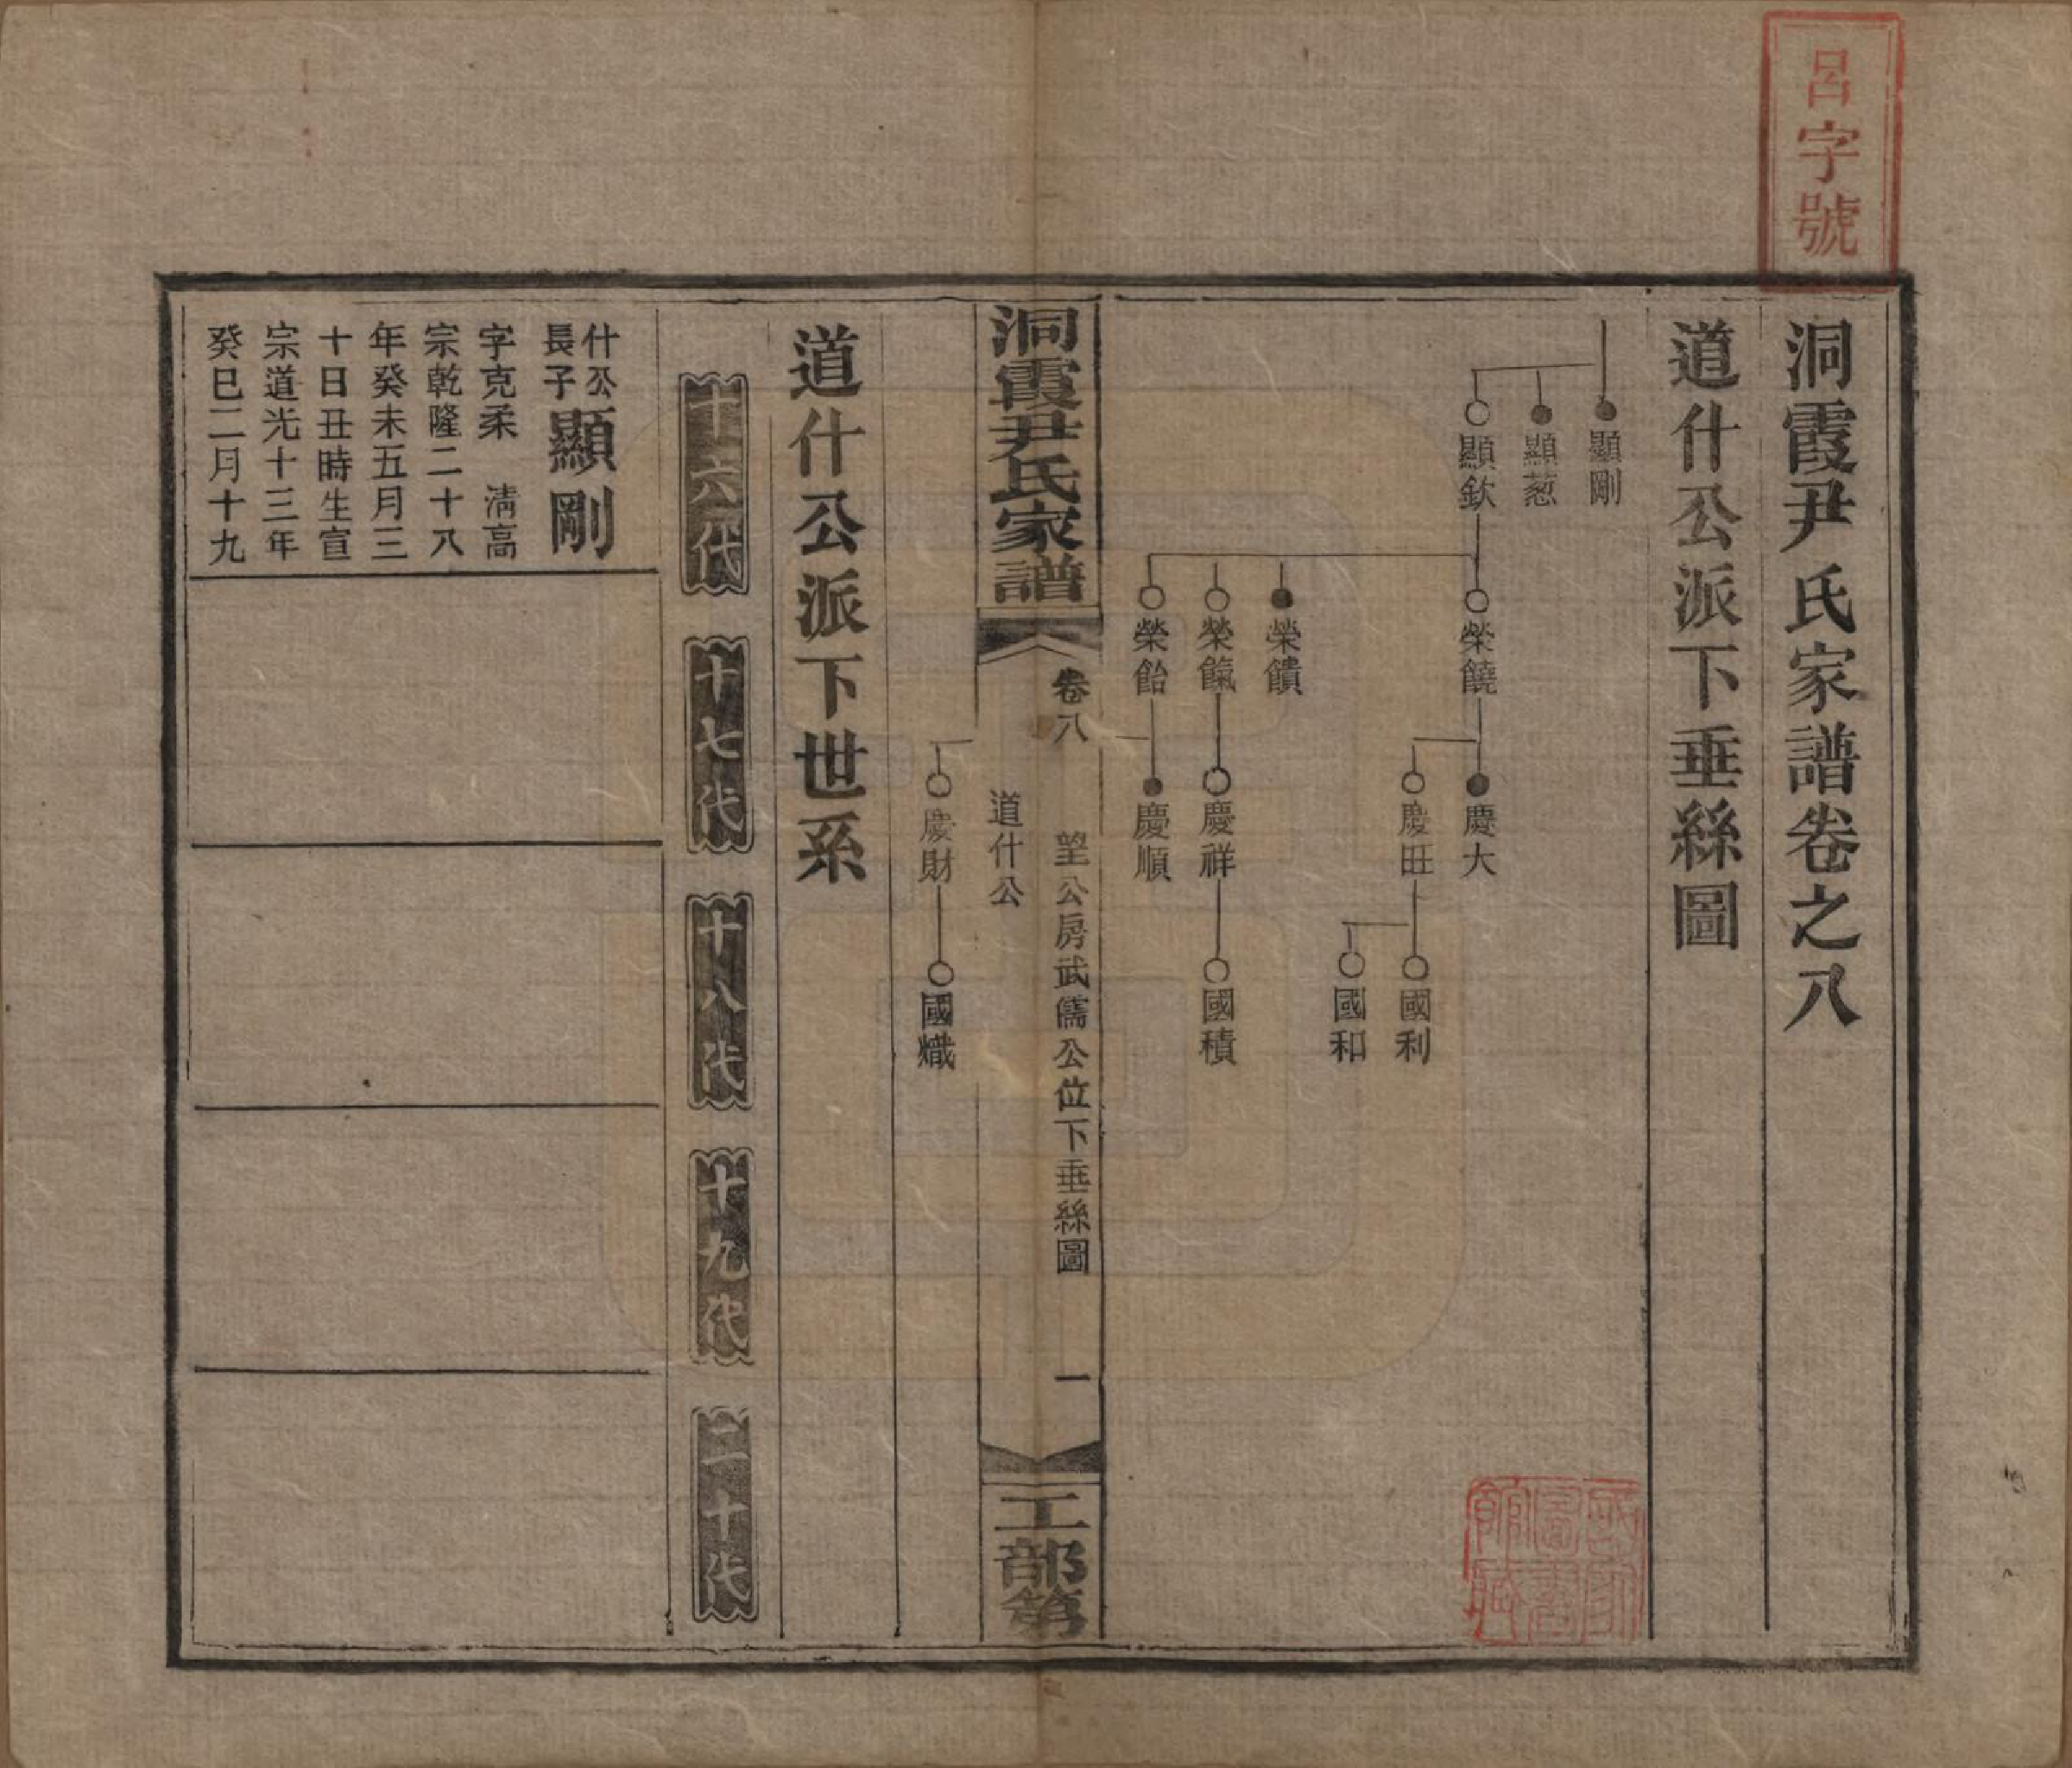 呂字號
洞霞尹氏家譜卷之八
道什公派下垂絲圖
顯剛
顯蒽
顯欽
榮饒
榮饋
榮餼
榮飴
慶大
慶旺
慶祥
慶順
國利
國和
國積
洞霞尹氏家譜
卷八
望公房武儒公位下垂絲圖
道什公
一
工部第
慶財
國熾
道什公派下世系
十六代
十七代
十八代
十九代
二十代
什公
長子
顯剛
字克柔 清高
宗乾隆二十八
年癸未五月三
十日丑時生宣
宗道光十三年
癸巳二月十九
國家圖書館藏